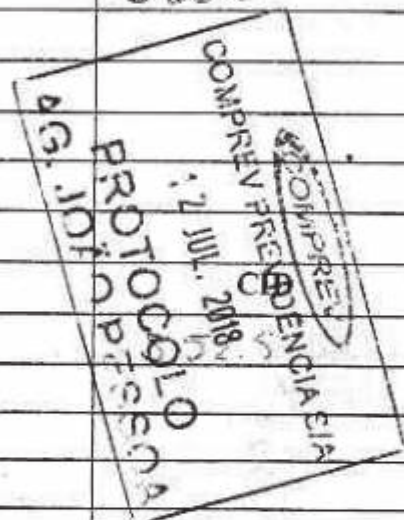 COMPREV
COMPREV PREVIDENCIA S/A
12 JUL. 2018
PROTOCOLO
AG. JOÃO PESSOA